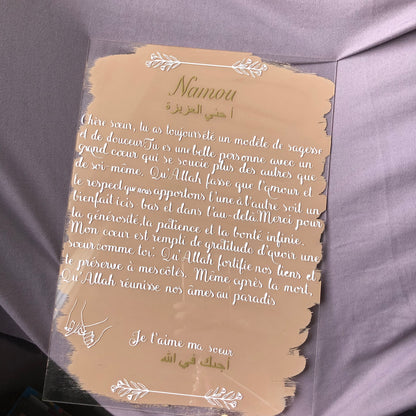 Namou
أحتي العزيزة
Chère sœur, tu as toujours été un modèle de sagesse
et de douceur. Tu es une belle personne avec un
grand cœur qui se soucie plus des autres que
de soi-même. Qu'Allah fasse que l'amour et
le respect que nous apportons l'une à l'autre soit un
bienfait ici-bas et dans l'au-delà. Merci pour
ta générosité, ta patience et ta bonté infinie.
Mon cœur est rempli de gratitude d'avoir une
sœur comme toi. Qu'Allah fortifie nos liens et
te préserve à mes côtés. Même après la mort,
Qu'Allah réunisse nos âmes au paradis
Je t'aime ma sœur
أحبك في الله